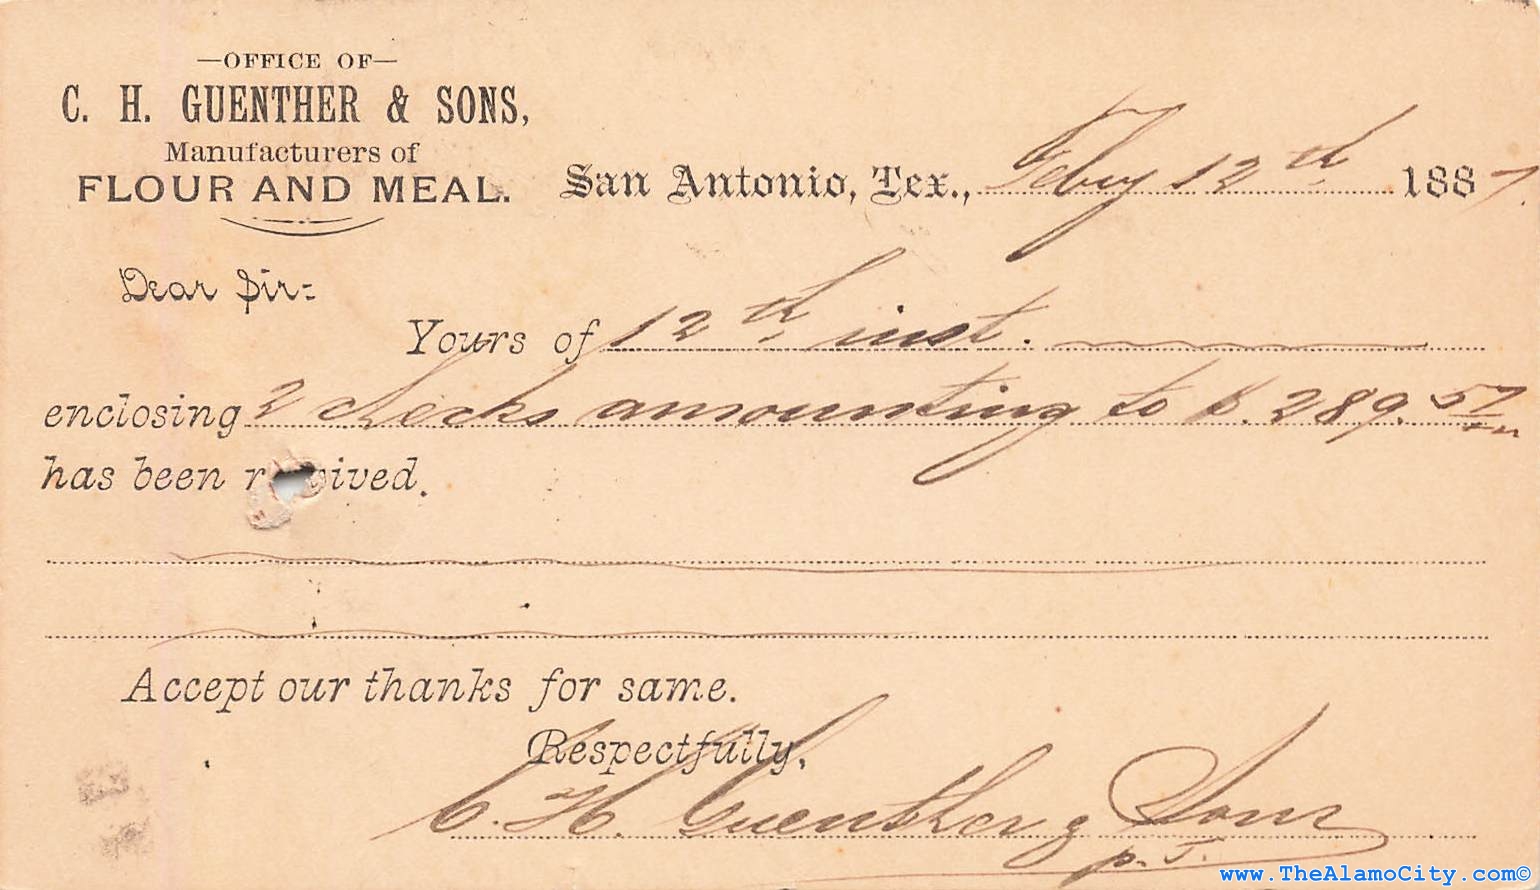 —OFFICE OF—
C. H. GUENTHER & SONS,
Manufacturers of
FLOUR AND MEAL.
San Antonio, Tex., Feby 12th 1887.
Dear Sir:
Yours of 12th inst.
enclosing 2 checks amounting to $.289.57
has been r ived.
Accept our thanks for same.
Respectfully,
C. H. Guenther & Sons
p. J.
www.TheAlamoCity.com©